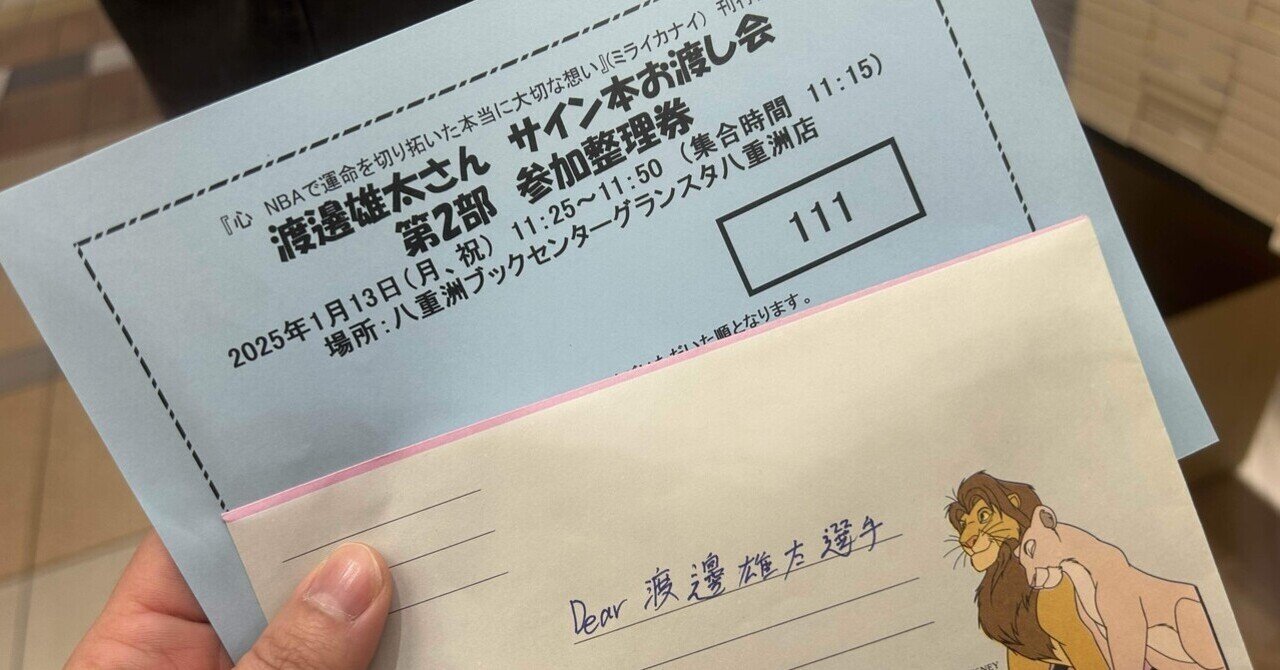 『心 NBAで運命を切り拓いた本当に大切な想い』(ミライカナイ) 刊行
渡邊雄太さん サイン本お渡し会
第2部 参加整理券
2025年1月13日(月、祝) 11:25~11:50 (集合時間 11:15)
場所:八重洲ブックセンターグランスタ八重洲店
111
いただいた順となります。
Dear 渡邊雄太選手